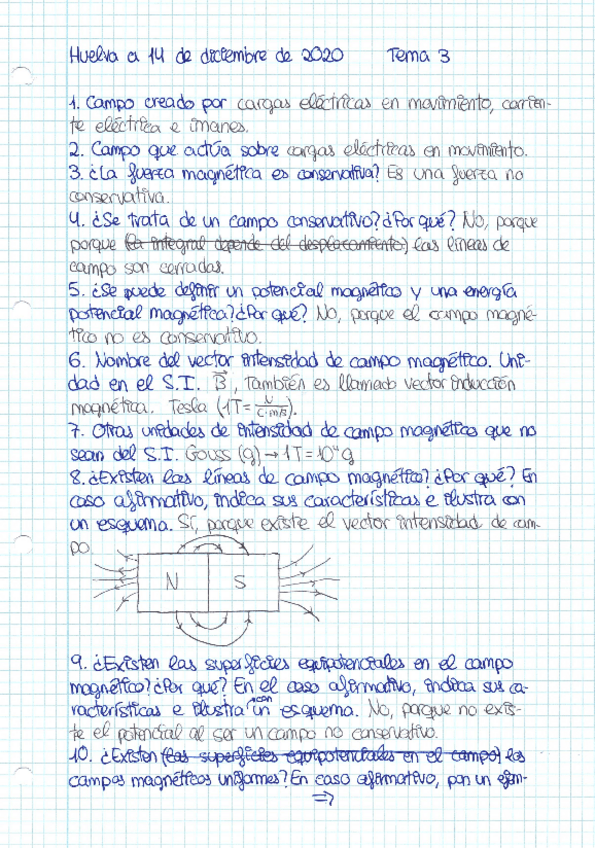 Huelva a 14 de diciembre de 2020 Tema 3
1. Campo creado por cargas eléctricas en movimiento, corrien-
te eléctrica e imanes.
2. Campo que actúa sobre cargas eléctricas en movimiento.
3. ¿La fuerza magnética es conservativa? Es una fuerza no
conservativa.
4. ¿Se trata de un campo conservativo? ¿Por qué? No, porque
porque (la integral depende del desplazamiento) las líneas de
campo son cerradas.
5. ¿Se puede definir un potencial magnético y una energía
potencial magnética? ¿Por qué? No, porque el campo magné-
tico no es conservativo.
6. Nombre del vector intensidad de campo magnético. Uni-
dad en el S.I. B⃗, También es llamado vector inducción
magnética. Tesla (1T = N/C·m/s).
7. Otras unidades de intensidad de campo magnético que no
sean del S.I. Gauss (g) → 1T = 10⁴ g
8. ¿Existen las líneas de campo magnético? ¿Por qué? En
caso afirmativo, indica sus características e ilustra con
un esquema. Sí, porque existe el vector intensidad de cam-
po.
N S
9. ¿Existen las superficies equipotenciales en el campo
magnético? ¿Por qué? En el caso afirmativo, indica sus ca-
racterísticas e ilustra con un esquema. No, porque no exis-
te el potencial al ser un campo no conservativo.
10. ¿Existen (las superficies equipotenciales en el campo) los
campos magnéticos uniformes? En caso afirmativo, pon un ejem-
⇒